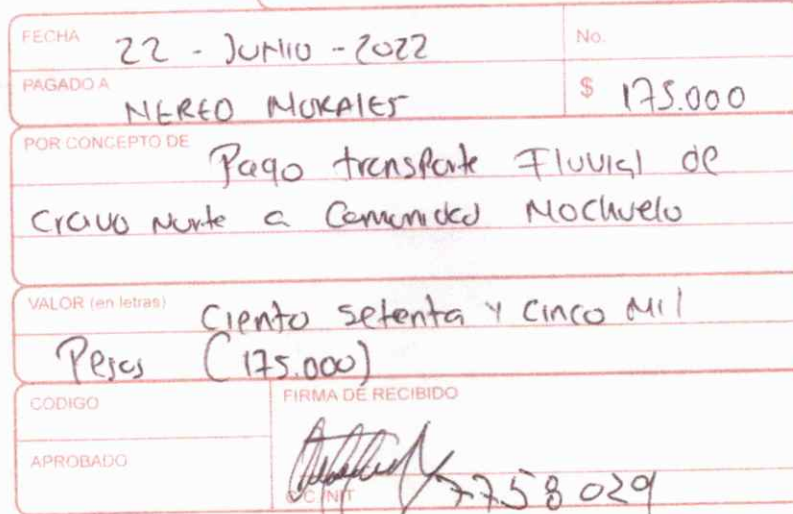 FECHA 22 - Junio - 2022 No.
PAGADO A NEREO MORALES $ 175.000
POR CONCEPTO DE Pago transporte Fluvial de
Cravo Norte a Comunidad Mochuelo
VALOR (en letras) Ciento setenta y Cinco Mil
Pesos (175.000)
CODIGO FIRMA DE RECIBIDO
APROBADO
C.C./NIT 7758029